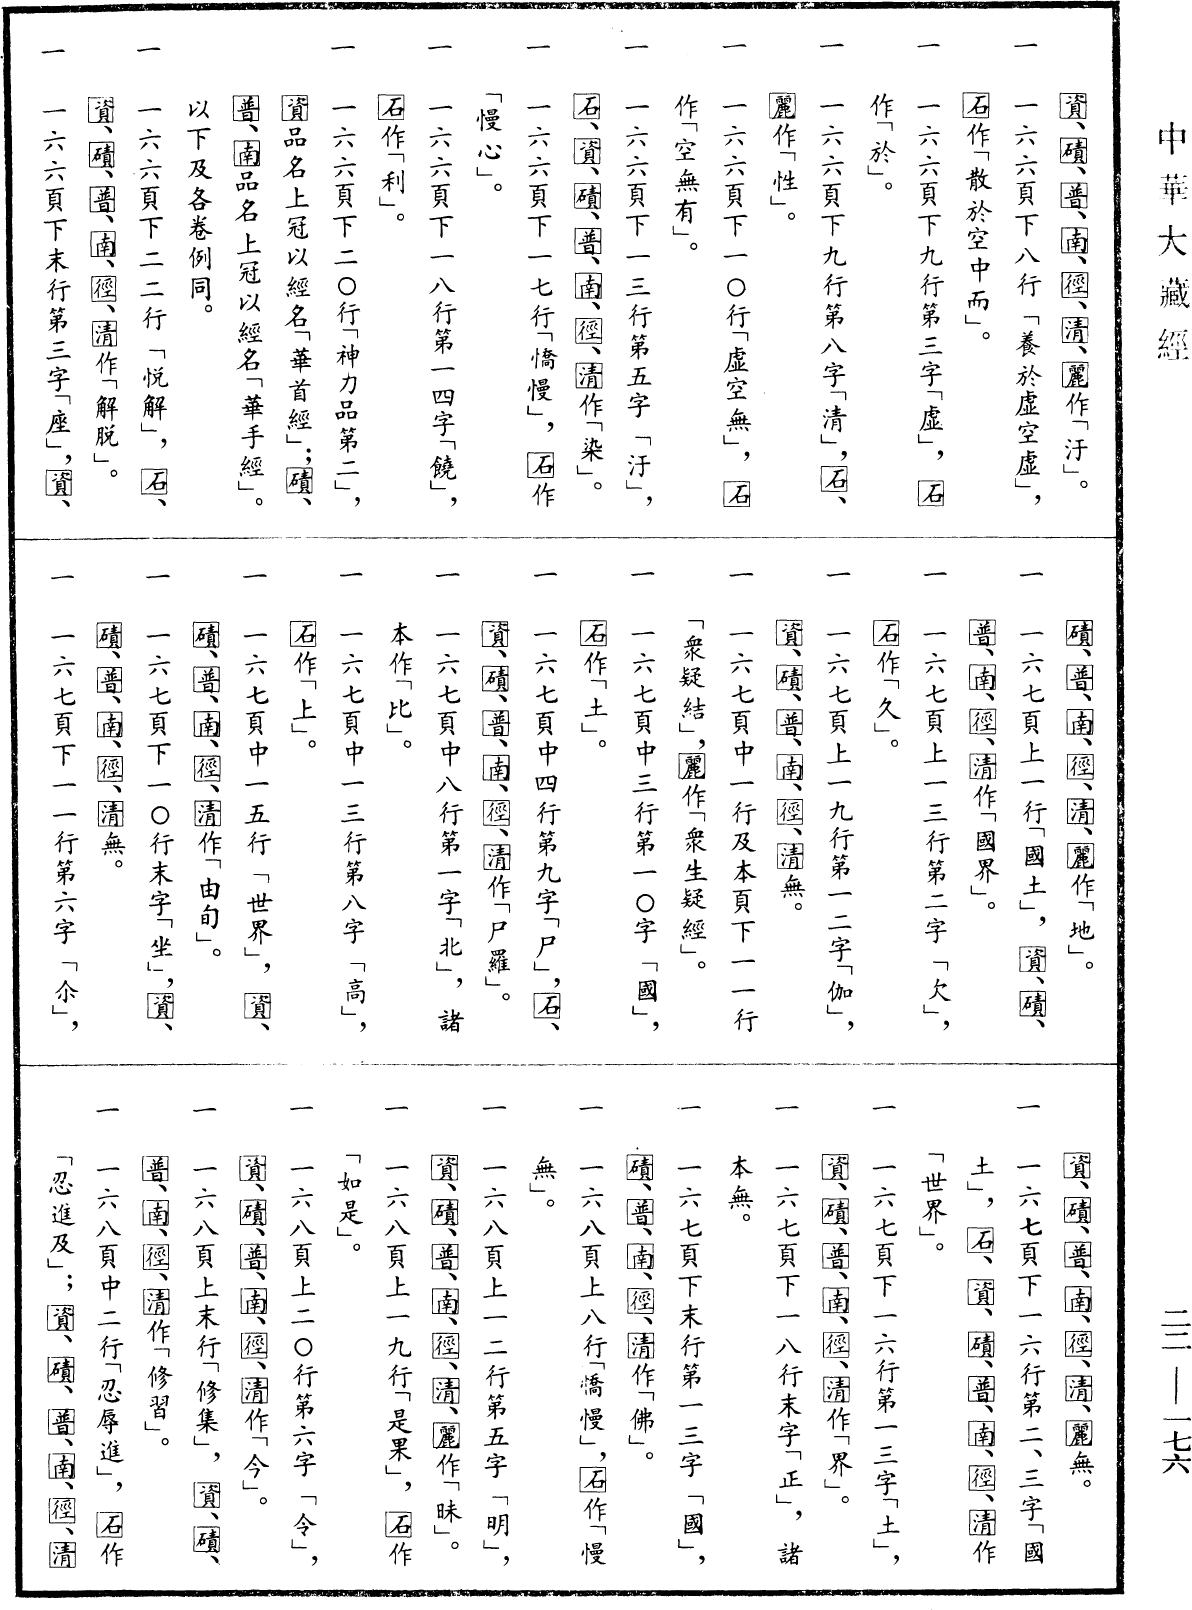 中華大藏經
資、磧、普、南、徑、清、麗作「汙」。
一 一六六頁下八行「養於虛空虛」，
石作「散於空中而」。
一 一六六頁下九行第三字「虛」，石
作「於」。
一 一六六頁下九行第八字「清」，石、
麗作「性」。
一 一六六頁下一〇行「虛空無」，石
作「空無有」。
一 一六六頁下一三行第五字「汙」，
石、資、磧、普、南、徑、清作「染」。
一 一六六頁下一七行「憍慢」，石作
「慢心」。
一 一六六頁下一八行第一四字「饒」，
石作「利」。
一 一六六頁下二〇行「神力品第二」，
資品名上冠以經名「華首經」；磧、
普、南品名上冠以經名「華手經」。
以下及各卷例同。
一 一六六頁下二二行「悅解」，石、
資、磧、普、南、徑、清作「解脫」。
一 一六六頁下末行第三字「座」，資、
磧、普、南、徑、清、麗作「地」。
一 一六七頁上一行「國土」，資、磧、
普、南、徑、清作「國界」。
一 一六七頁上一三行第二字「欠」，
石作「久」。
一 一六七頁上一九行第一二字「伽」，
資、磧、普、南、徑、清無。
一 一六七頁中一行及本頁下一一行
「衆疑結」，麗作「衆生疑經」。
一 一六七頁中三行第一〇字「國」，
石作「土」。
一 一六七頁中四行第九字「尸」，石、
資、磧、普、南、徑、清作「尸羅」。
一 一六七頁中八行第一字「北」，諸
本作「比」。
一 一六七頁中一三行第八字「高」，
石作「上」。
一 一六七頁中一五行「世界」，資、
磧、普、南、徑、清作「由旬」。
一 一六七頁下一〇行末字「坐」，資、
磧、普、南、徑、清無。
一 一六七頁下一一行第六字「尒」，
資、磧、普、南、徑、清、麗無。
一 一六七頁下一六行第二、三字「國
土」，石、資、磧、普、南、徑、清作
「世界」。
一 一六七頁下一六行第一三字「土」，
資、磧、普、南、徑、清作「界」。
一 一六七頁下一八行末字「正」，諸
本無。
一 一六七頁下末行第一三字「國」，
磧、普、南、徑、清作「佛」。
一 一六八頁上八行「憍慢」，石作「慢
無」。
一 一六八頁上一二行第五字「明」，
資、磧、普、南、徑、清、麗作「昧」。
一 一六八頁上一九行「是果」，石作
「如是」。
一 一六八頁上二〇行第六字「令」，
資、磧、普、南、徑、清作「今」。
一 一六八頁上末行「修集」，資、磧、
普、南、徑、清作「修習」。
一 一六八頁中二行「忍辱進」，石作
「忍進及」；資、磧、普、南、徑、清
二二—一七六